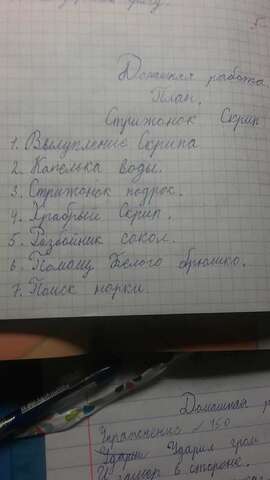 Домашняя работа
План.
Стрижонок Скрип
1. Вылупление Скрипа
2. Капелька воды.
3. Стрижонок подрос.
4. Храбрый Скрип.
5. Разбойник сокол.
6. Помощу Белого брюшко.
7. Поиск норки.
Домашная р
Упражнение 150
Ударил гром
в стороне.